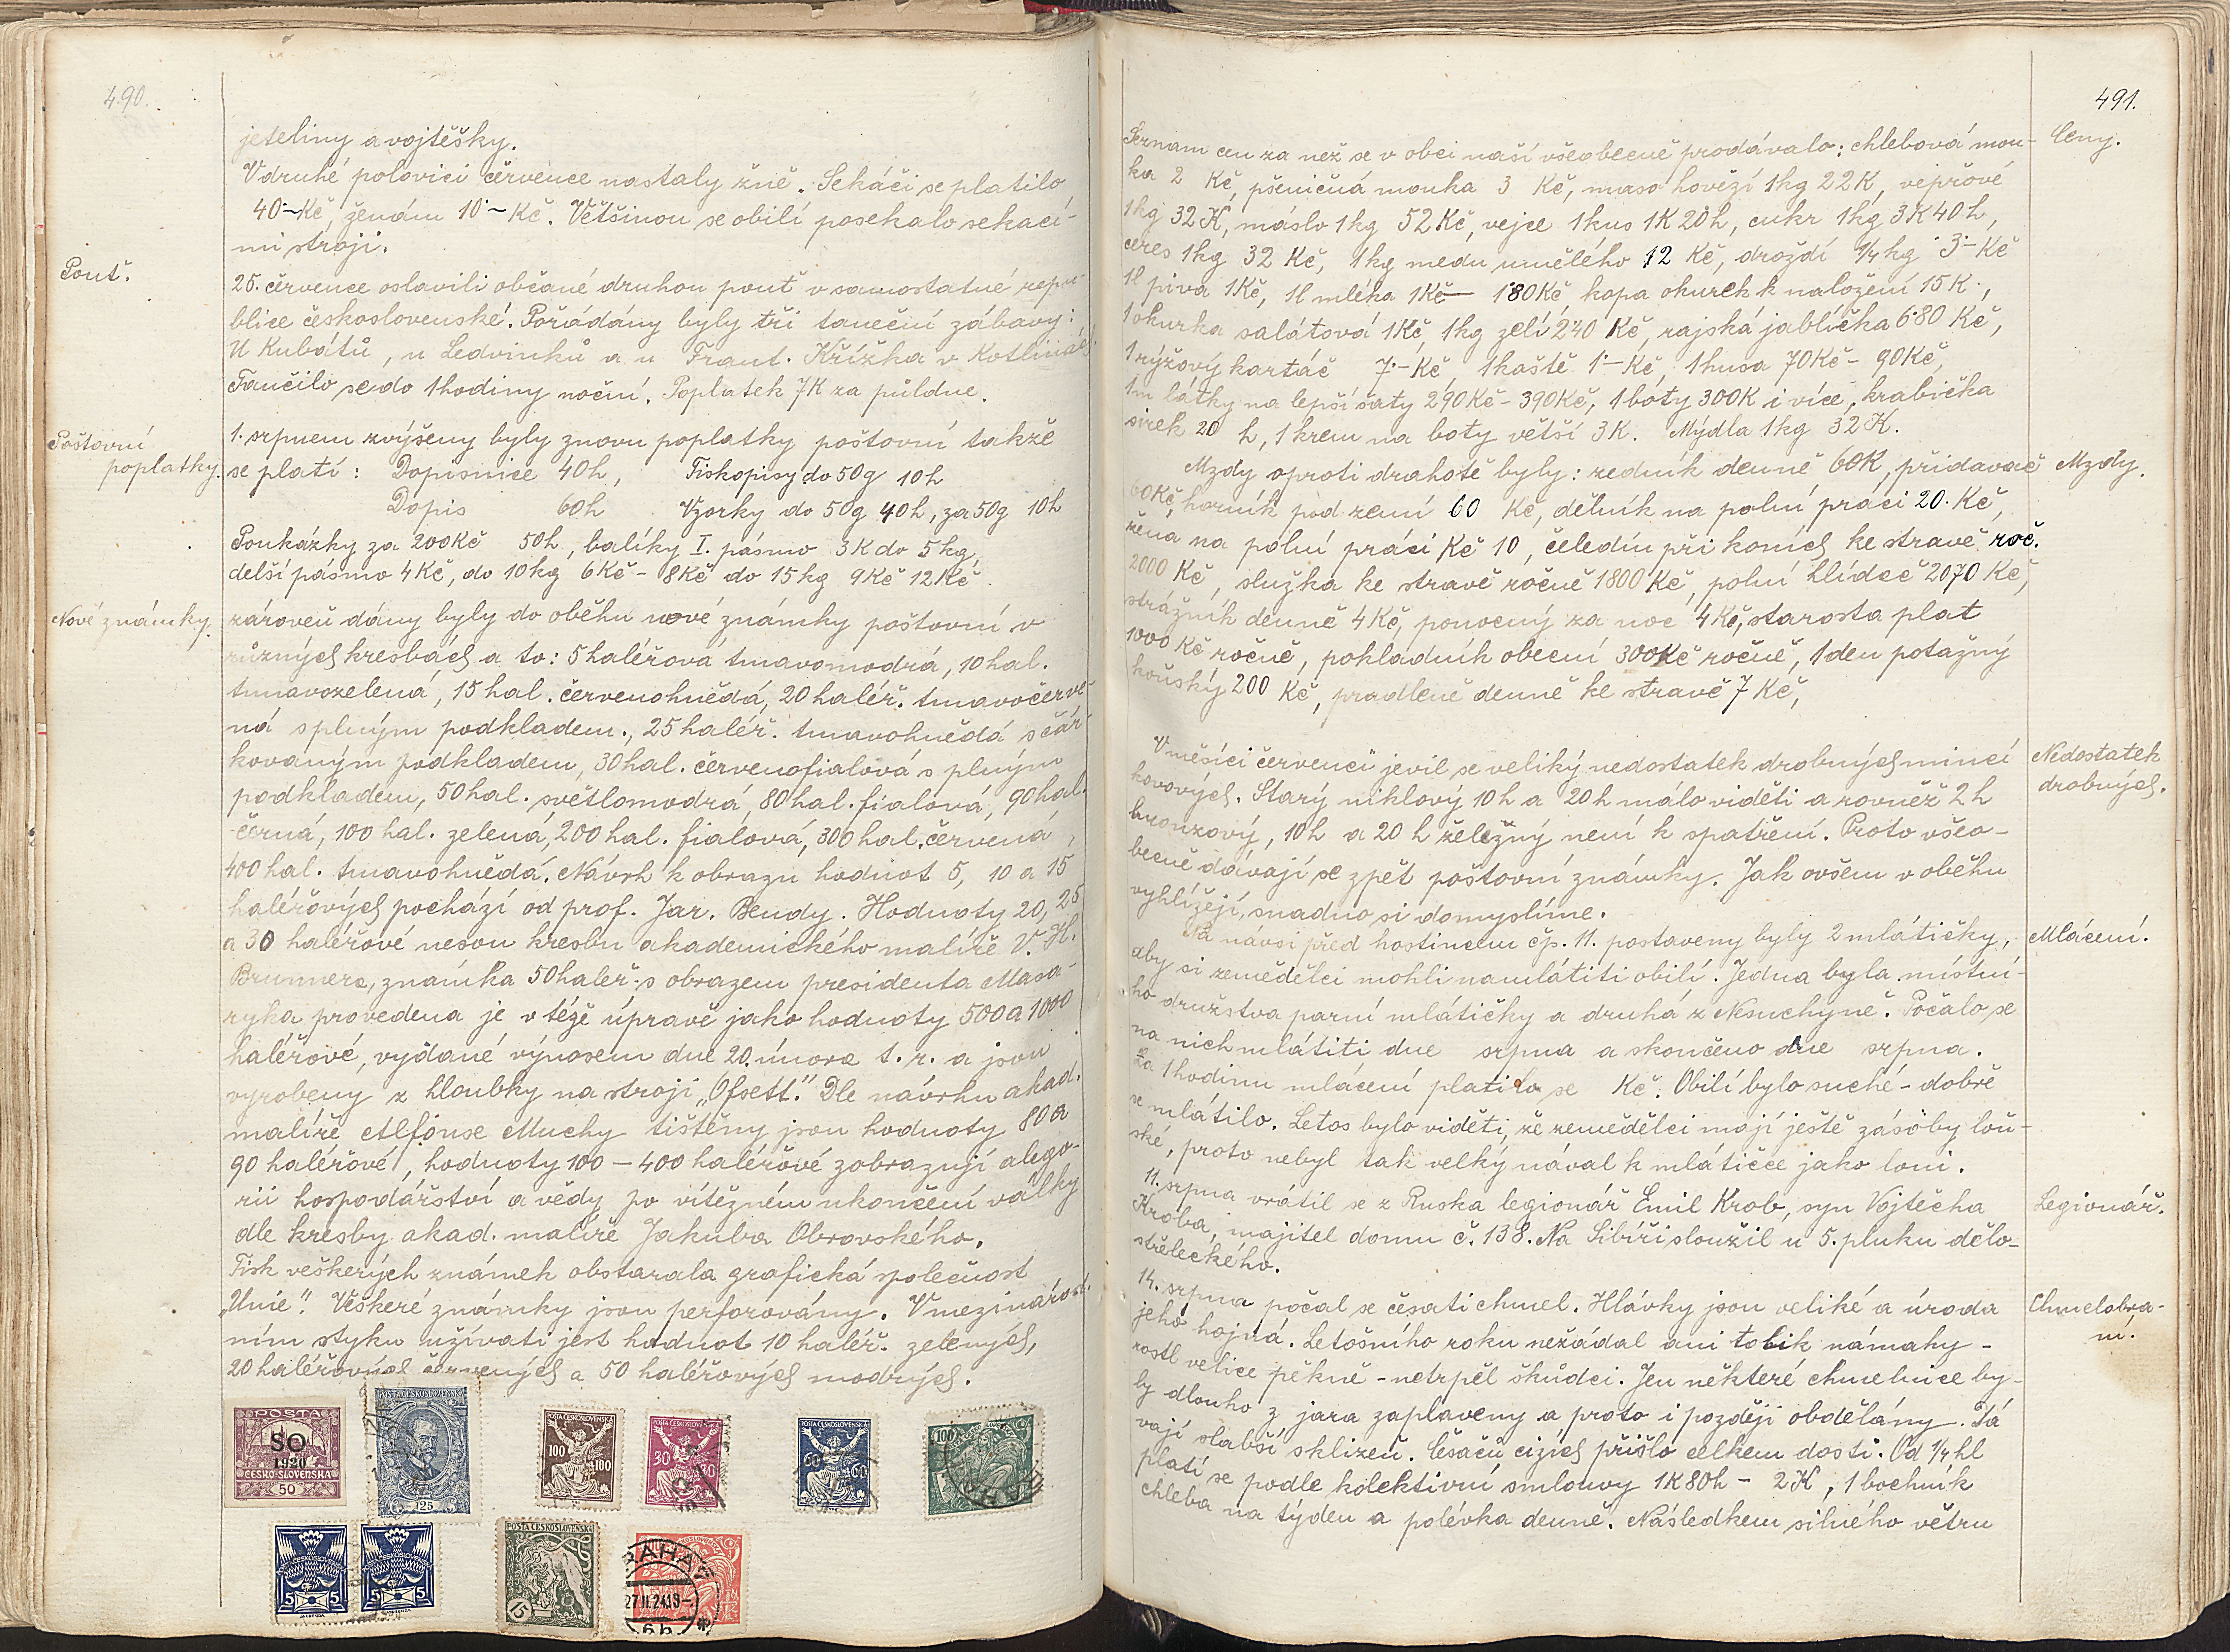 490.
jeteliny a vojtěšky.
V druhé polovici července nastaly žně. Sekáči se platilo
40·- Kč, ženám 10·- Kč. Většinou se obilí posekalo sekací-
mi stroji.
Pouť.
25. července oslavili občané druhou pouť v samostatné repu-
blice československé. Pořádány byly tři taneční zábavy:
U Kubátů, u Ledvinků a u Frant. Křížka v Kotlinách.
Tančilo se do 1 hodiny noční. Poplatek 7K za půldne.
Poštovní
poplatky.
1. srpnem zvýšeny byly znovu poplatky poštovní takže
se platí: Dopisnice 40h, Tiskopisy do 50g 10h
Dopis 60h Vzorky do 50g 40h, za 50g 10h
Poukázky za 200Kč 50h, balíky I. pásmo 3K do 5kg,
delší pásmo 4Kč, do 10kg 6Kč - 8Kč do 15kg 9Kč 12Kč.
Nové známky.
zároveň dány byly do oběhu nové známky poštovní v
různých kresbách a to: 5 haléřová tmavomodrá, 10 hal.
tmavozelená, 15 hal. červenohnědá, 20 haléř. tmavočerve-
ná s plným podkladem., 25 haléř. tmavohnědá s čár-
kovaným podkladem, 30 hal. červenofialová s plným
podkladem, 50 hal. světlomodrá, 80 hal. fialová, 90 hal.
černá, 100 hal. zelená, 200 hal. fialová, 300 hal. červená,
400 hal. tmavohnědá. Návrh k obrazu hodnot 5, 10 a 15
haléřových pochází od prof. Jar. Bendy. Hodnoty 20, 25
a 30 haléřové nesou kresbu akademického malíře V. H.
Brunnera, známka 50 haléř. s obrazem presidenta Masa-
ryka provedena je v téže úpravě jako hodnoty 500 a 1000
haléřové, vydané výnosem dne 20. února t. r. a jsou
vyrobeny z hloubky na stroji „Ofsett." Dle návrhu akad.
malíře Alfonse Muchy tištěny jsou hodnoty 80 a
90 haléřové, hodnoty 100 - 400 haléřové zobrazují alego-
rii hospodářství a vědy po vítězném ukončení války
dle kresby akad. malíře Jakuba Obrovského.
Tisk veškerých známek obstarala grafická společnost
„Unie". Veškeré známky jsou perforovány. V mezinárod-
ním styku užívati jest hodnot 10 haléř. zelených,
20 haléřových červených a 50 haléřových modrých.
POŠTA
SO
1920
ČESKO-SLOVENSKÁ
50
POŠTA ČESKOSLOVENSKÁ
125
POŠTA ČESKOSLOVENSKÁ
100 100
POŠTA ČESKOSLOVENSKÁ
30 30
POŠTA ČESKOSLOVENSKÁ
60 60
100
5 5
5 5
POŠTA ČESKOSLOVENSKÁ
15
PRAHA
27.II.24.13-
6b
491.
Seznam cen za než se v obci naší všeobecně prodávalo: chlebová mou-
Ceny.
ka 2 Kč, pšeničná mouka 3 Kč, maso hovězí 1kg 22K, vepřové
1kg 32K, máslo 1kg 52Kč, vejce 1 kus 1K 20h, cukr 1kg 3K 40h,
ceres 1kg 32 Kč, 1kg medu umělého 12 Kč, droždí 1/4 kg 3·- Kč
1l piva 1Kč, 1l mléka 1Kč- 1·80Kč kopa okurek k naložení 15K.,
1 okurka salátová 1Kč, 1kg zelí 2·40 Kč, rajská jablíčka 6·80 Kč,
1 rýžový kartáč 7·- Kč 1 koště 1·- Kč, 1 husa 70Kč - 90Kč,
1m látky na lepší šaty 290Kč - 390Kč, 1 boty 300K i více, krabička
sirek 20 h, 1 krem na boty větší 3K. Mýdla 1kg 32K.
Mzdy oproti drahotě byly: zedník denně 60K, přidavač
Mzdy.
60Kč, horník pod zemí 60 Kč, dělník na polní práci 20·Kč,
žena na polní práci Kč 10, čeledín při koních ke stravě roč.
2000 Kč, služka ke stravě ročně 1800 Kč, polní hlídač 2070 Kč,
strážník denně 4Kč, ponocný za noc 4 Kč, starosta plat
1000 Kč ročně, pokladník obecní 300Kč ročně, 1 den potažný
koňský 200 Kč, pradleně denně ke stravě 7 Kč,
V měsíci červenci jevil se veliký nedostatek drobných mincí
Nedostatek
drobných.
kovových. Starý niklový 10h a 20h málo viděti a rovněž 2h
bronzový, 10h a 20 h železný není k spatření. Proto všeo-
becně dávají se zpět poštovní známky. Jak ovšem v oběhu
vyhlížejí, snadno si domyslíme.
Na návsi před hostincem čp. 11. postaveny byly 2 mlátičky,
Mlácení.
aby si zemědělci mohli namlátiti obilí. Jedna byla místní-
ho družstva parní mlátičky a druhá z Nesuchyně. Počalo se
na nich mlátiti dne srpna a skončeno dne srpna.
Za 1 hodinu mlácení platilo se Kč. Obilí bylo suché - dobře
se mlátilo. Letos bylo viděti, že zemědělci mají ještě zásoby loň-
ské, proto nebyl tak velký nával k mlátičce jako loni.
11. srpna vrátil se z Ruska legionář Emil Krob, syn Vojtěcha
Legionář.
Kroba, majitel domu č. 138. Na Sibíři sloužil u 5. pluku dělo-
střeleckého.
14. srpna počal se česati chmel. Hlávky jsou veliké a úroda
Chmelobra-
ní.
jeho hojná. Letošního roku nežádal ani tolik námahy -
rostl velice pěkně - netrpěl škůdci. Jen některé chmelnice by-
ly dlouho z jara zaplaveny a proto i později obdělány. Tá
vají slabší sklizeň. Česačů cizích přišlo celkem dosti. Od 1/4 hl
platí se podle kolektivní smlouvy 1K 80h - 2K, 1 bochník
chleba na týden a polévka denně. Následkem silného větru